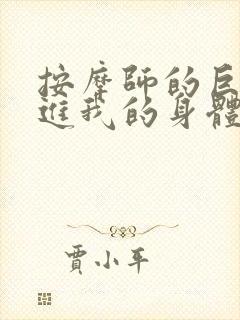 按摩師的巨
進我的身體
賈小平